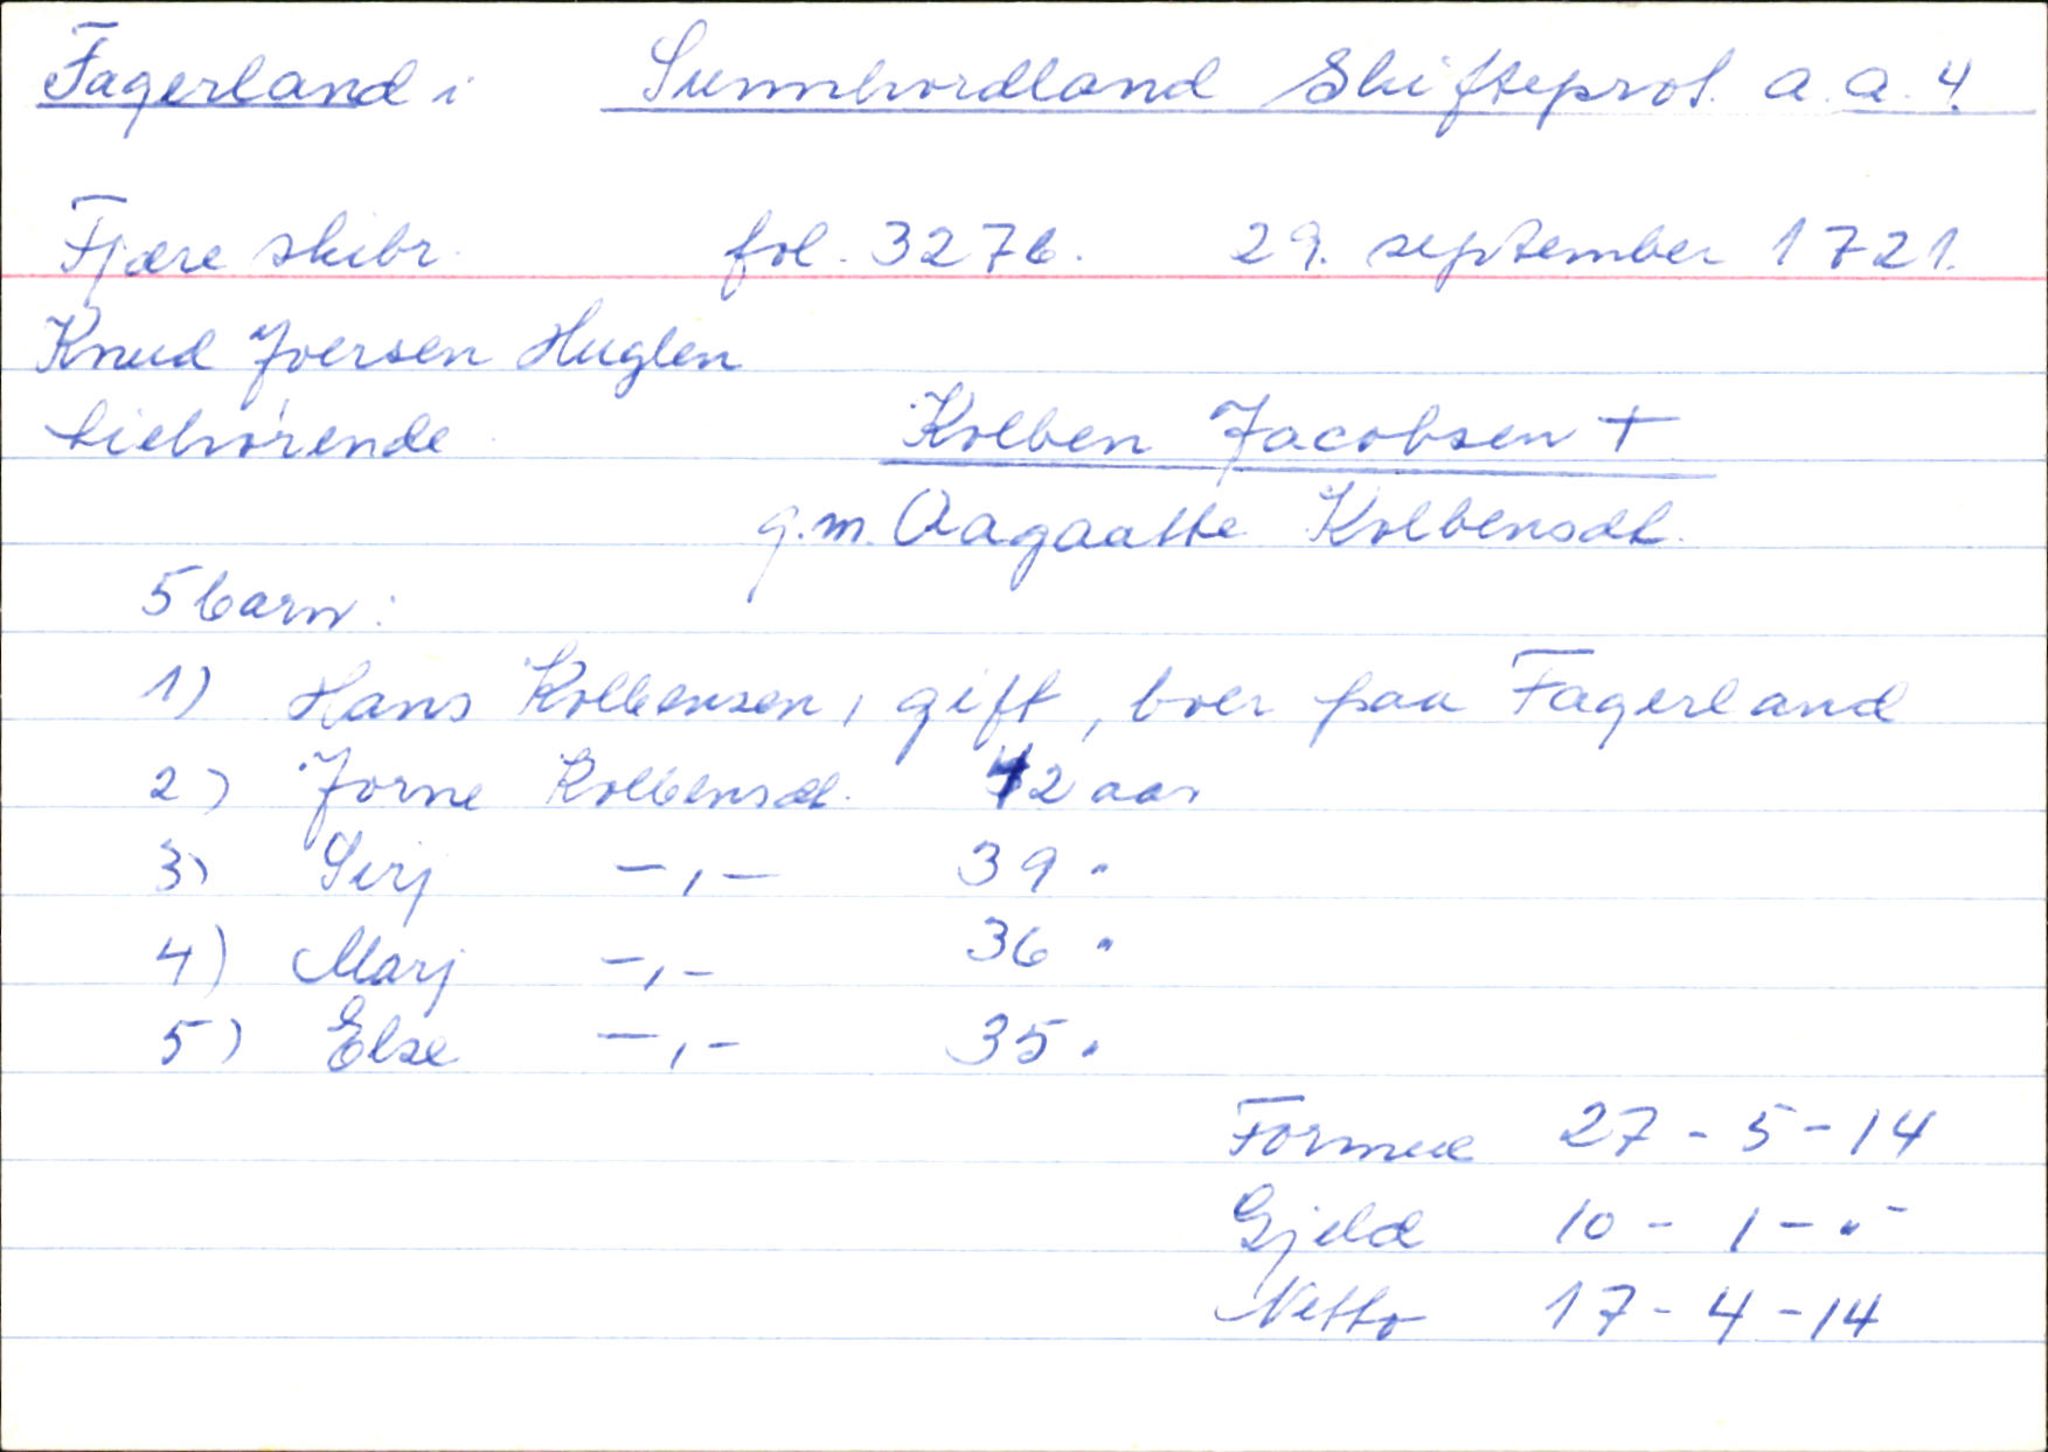 Fagerland i Sunnhordland Skifteprot. a. a. 4.
Fjære skibr. fol. 327b. 29. september 1721.
Knud Joersen Huglen
tilhørende
Kolben Jacobsen +
g.m. Aagaatte Kolbensdt.
5 barn:
1) Hans Kolbensen, gift, boer paa Fagerland
2) Jorne Kolbensdt. 42 aar
3) Sirj -,- 39 "
4) Marj -,- 36 "
5) Else -,- 35 "
Formue 27 - 5 - 14
Gjeld 10 - 1 - " -
Netto 17 - 4 - 14